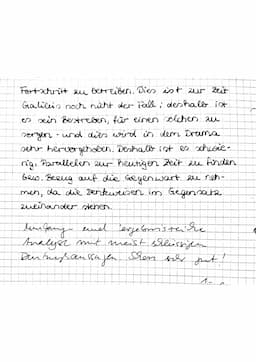 Fortschritt zu betreiben. Dies ist zur Zeit
Galileis noch nicht der Fall; deshalb ist
es sein Bestreben, für einen solchen zu
sorgen - und dies wird in dem Drama
sehr hervorgehoben. Deshalb ist es schwie-
rig, Parallelen zur heutigen Zeit zu finden
bzw. Bezug auf die Gegenwart zu neh-
men, da die Denkweisen im Gegensatz
zueinander stehen.
Umfang- und ergebnisreiche
Analyse mit meist schlüssigen
Schon sehr gut!